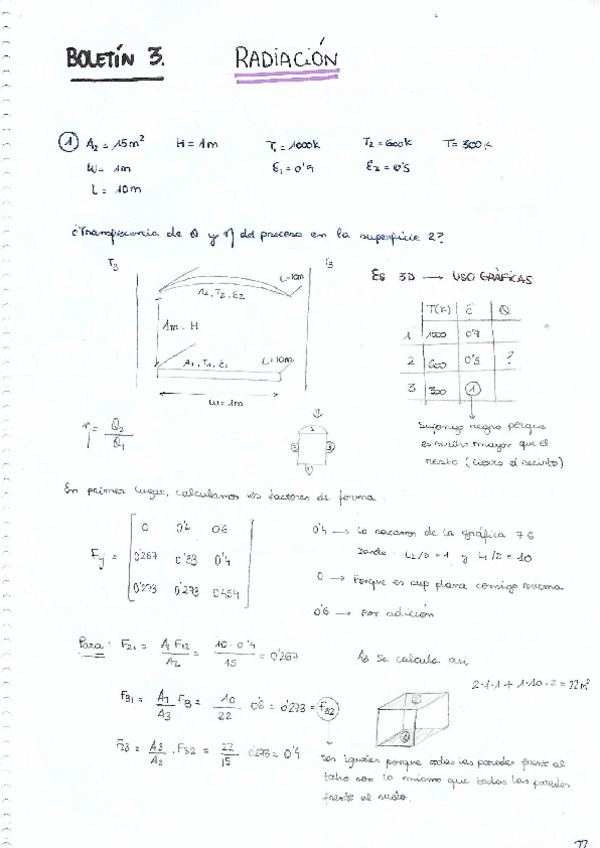 BOLETÍN 3. RADIACIÓN
① A₂ = 15m² H = 1m T₁ = 1000K T₂ = 600K T = 300K
W = 1m ε₁ = 0'9 ε₂ = 0'5
L = 10m
¿Transferencia de Q y η del proceso en la superficie 2?
T₃
L=10m
A₂, T₂, ε₂
1m = H
A₁, T₁, ε₁ L=10m
W = 1m
ES 3D → USO GRÁFICAS
T(K) ε Q
1 1000 0'9
2 600 0'5 ?
3 300 1
Supongo negro porque
es mucho mayor que el
resto (cierro el recinto)
η = Q₂/Q₁
2
3 3
1
En primer lugar, calculamos los factores de forma:
Fij =
0 0'4 0'6
0'267 0'33 0'4
0'273 0'273 0'454
0'4 → lo sacamos de la gráfica 76
Donde L₂/D = 1 y L₁/D = 10
0 → Porque es sup plana consigo misma
0'6 → Por adición
Para: F₂₁ = A₁ F₁₂ / A₂ = 10 · 0'4 / 15 = 0'267
A₃ se calcula así
2·1·1 + 1·10·2 = 22m²
F₃₁ = A₁/A₃ F₁₃ = 10/22 0'6 = 0'273 = F₃₂
F₂₃ = A₃/A₂ · F₃₂ = 22/15 0'273 = 0'4
Son iguales porque todas las paredes frente al
techo son lo mismo que todas las paredes
frente al suelo.